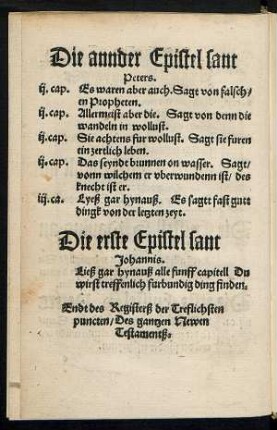 Die annder Epistel sant
Peters.
ij. cap. Es waren aber auch. Sagt von falsch/
en Propheten.
ij. cap. Allermeist aber die. Sagt von denn die
wandeln in wollust.
ij. cap. Sie achtens fur wollust. Sagt sie furen
ein zertlich leben.
ij. cap. Das seyndt brunnen on wasser. Sagt/
vonn wilchem er vberwundenn ist/ des
knecht ist er.
iij. ca. Lyeß gar hynauß. Es sagt fast gutt
dingk von der letzten zeyt.
Die erste Epistel sant
Johannis.
Ließ gar hynauß alle funff capitell Du
wirst treffenlich furbundig ding finden.
Endt des Registerß der Treflichsten
puncten/ Des gantzen Newen
Testamentß.